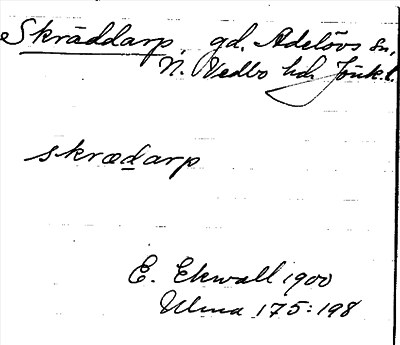 Skräddarp, gd. Adelövs sn,
N. Vedbo hd, Jönk. l.
skræḏarp
E. Ekwall 1900
Ulma 175:198